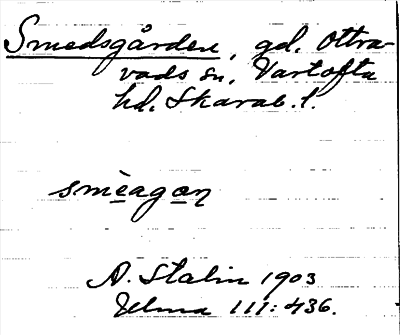 Smedsgården, gd. Ottra-
vads sn, Vartofta
hd. Skarab. l.
smèagon
A. Stalin 1903
Uelma 111: 436.